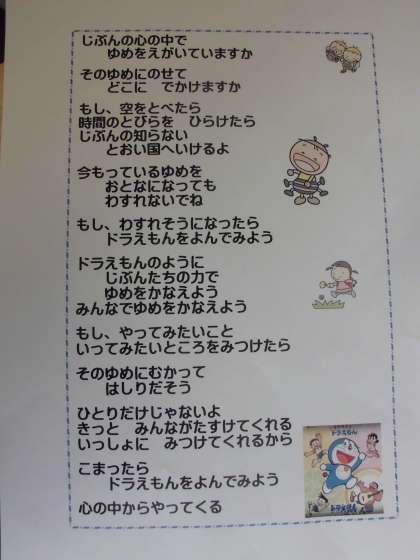 じぶんの心の中で
ゆめをえがいていますか
そのゆめにのせて
どこに　でかけますか
もし、空をとべたら
時間のとびらを　ひらけたら
じぶんの知らない
とおい国へいけるよ
今もっているゆめを
おとなになっても
わすれないでね
もし、わすれそうになったら
ドラえもんをよんでみよう
ドラえもんのように
じぶんたちの力で
ゆめをかなえよう
みんなでゆめをかなえよう
もし、やってみたいこと
いってみたいところをみつけたら
そのゆめにむかって
はしりだそう
ひとりだけじゃないよ
きっと　みんながたすけてくれる
いっしょに　みつけてくれるから
こまったら
ドラえもんをよんでみよう
心の中からやってくる
ドラえもん